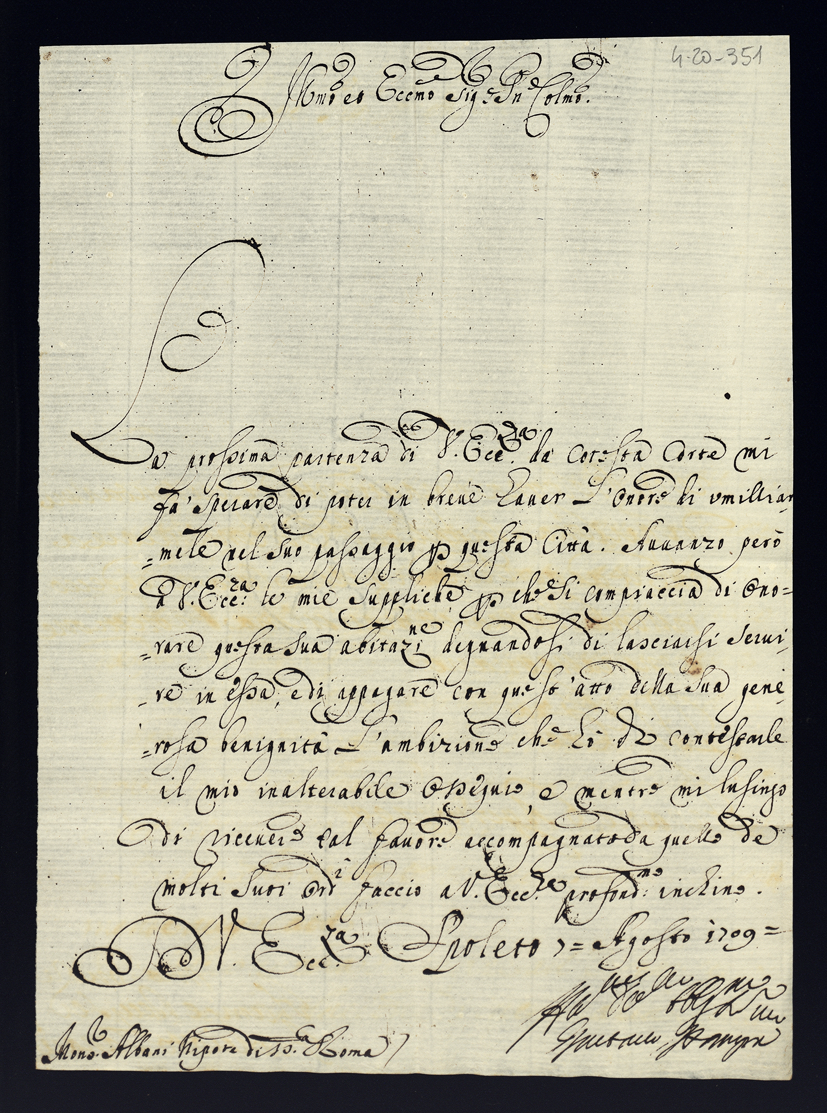 4-20-351
Illmo et Eccmo Sig.re Pne Colmo.
La prossima partenza di V. Ecc.za da cotesta Corte mi
fà sperare di poter in breve haver l'onore di umiliar
=mele nel suo passaggio p questa Città. Avvanzo però
à V. Ecc.za le mie suppliche p che si compiaccia di Ono=
=rare questa sua abitaz.ne degnandosi di lasciarsi servi
=re in essa, e di appagare con quest'atto della sua gene
=rosa benignità l'ambizione che hò di contestarle
il mio inalterabile ossequio, e mentre mi lusingo
di ricever tal favore accompagnato da quello de
molti suoi ord.i faccio a V. Ecc.za profond.mo inchino.
D V. Ecc.za Spoleto 7= Agosto 1709=
Mons. Albani Nipote di S. S.ta Roma
Gaetano Stampa